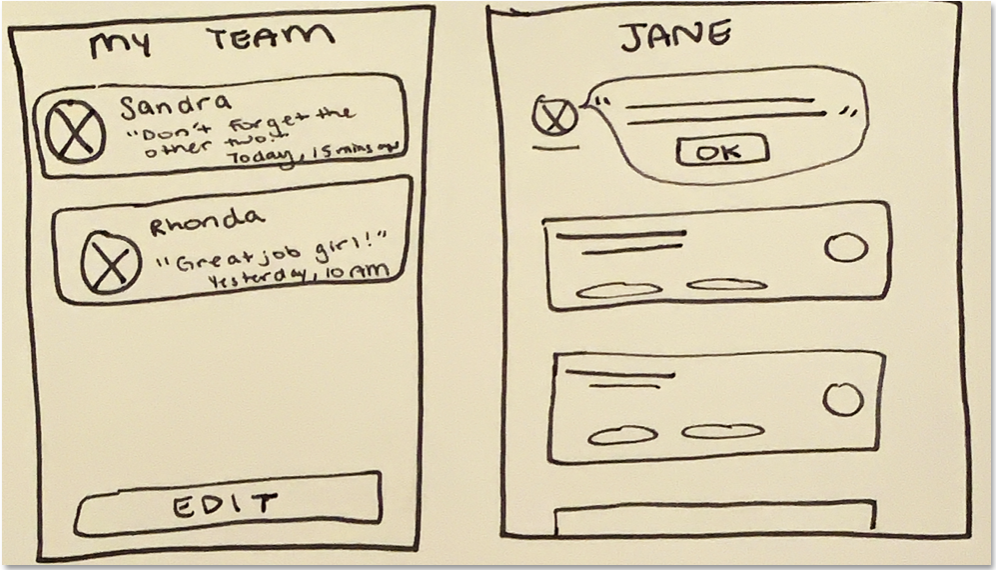 MY TEAM
Sandra
"Don't forget the
other two!"
Today, 15 mins ago
Rhonda
"Great job girl!"
Yesterday, 10 AM
EDIT
JANE
" "
OK